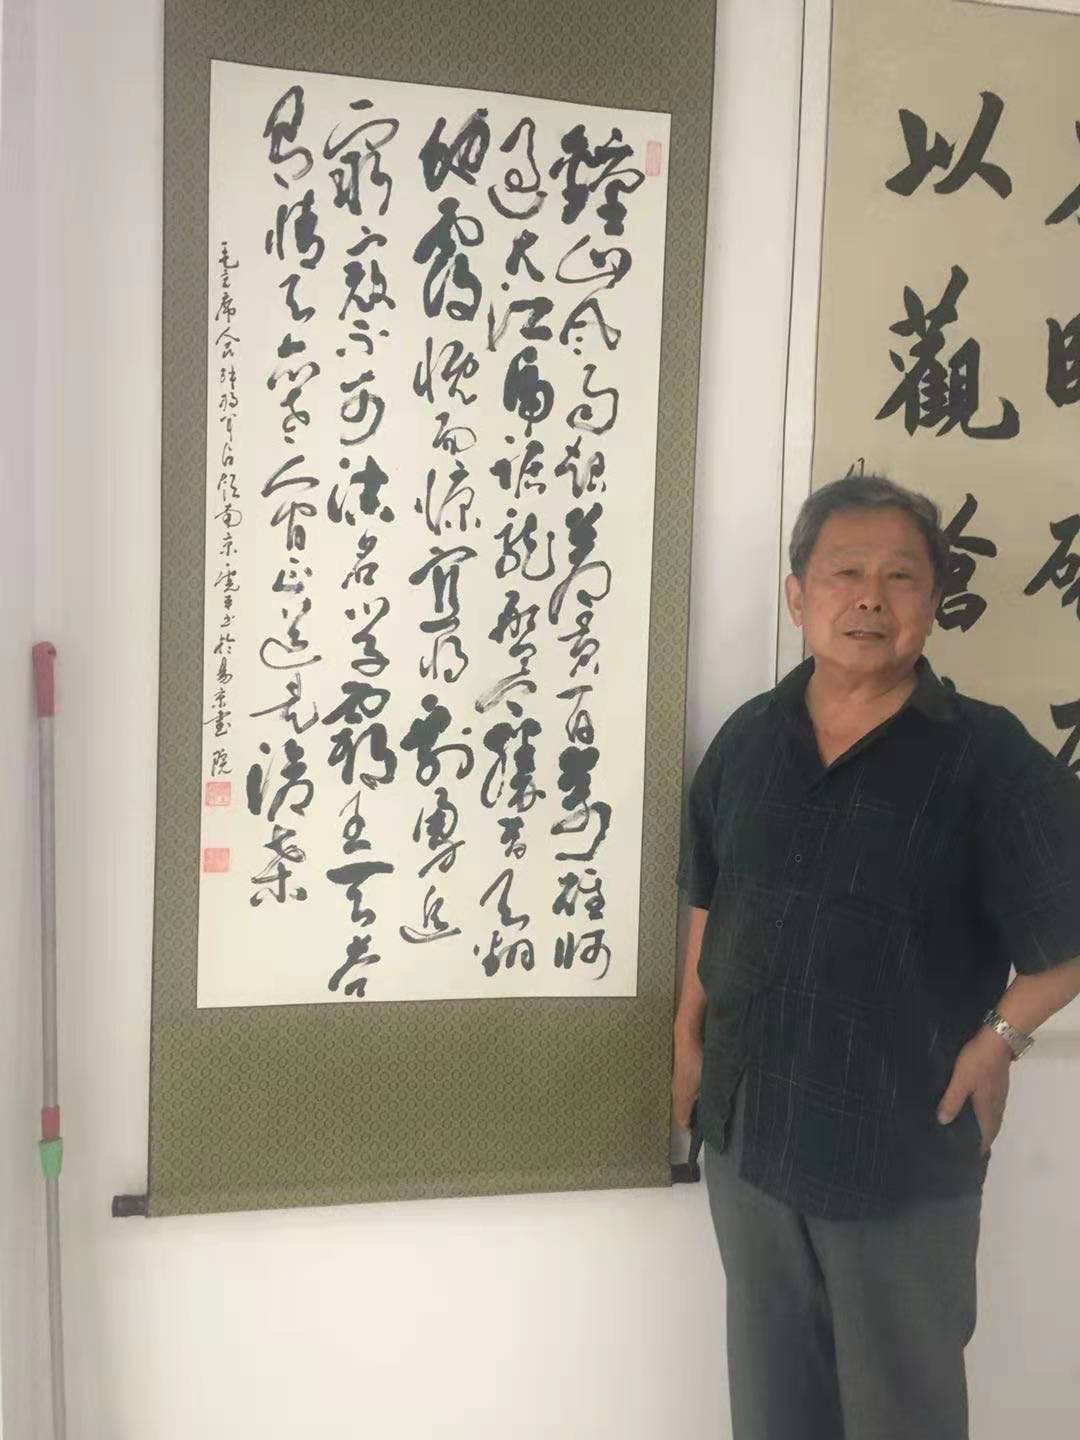 以觀滄
鐘山风雨起蒼黄百萬雄师
过大江虎踞龙盘今勝昔天翻
地覆慨而慷宜将剩勇追
窮寇不可沽名学霸王天若
有情天亦老人间正道是滄桑
毛主席人民解放军占领南京书於易京書院